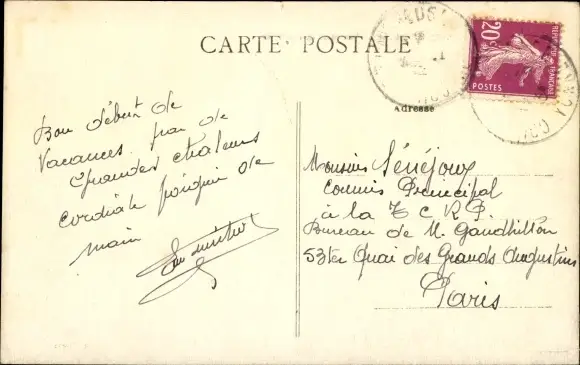 CARTE POSTALE
20c
REPUBLIQUE FRANÇAISE
POSTES
Adresse
Bon début de
vacances. pas de
grandes chaleurs
cordiale poignée de
main
Monsieur Sénéjoux
Commis Principal
à la T C R P.
Bureau de M. Gaudhilton
53ter Quai des Grands Augustins
Paris